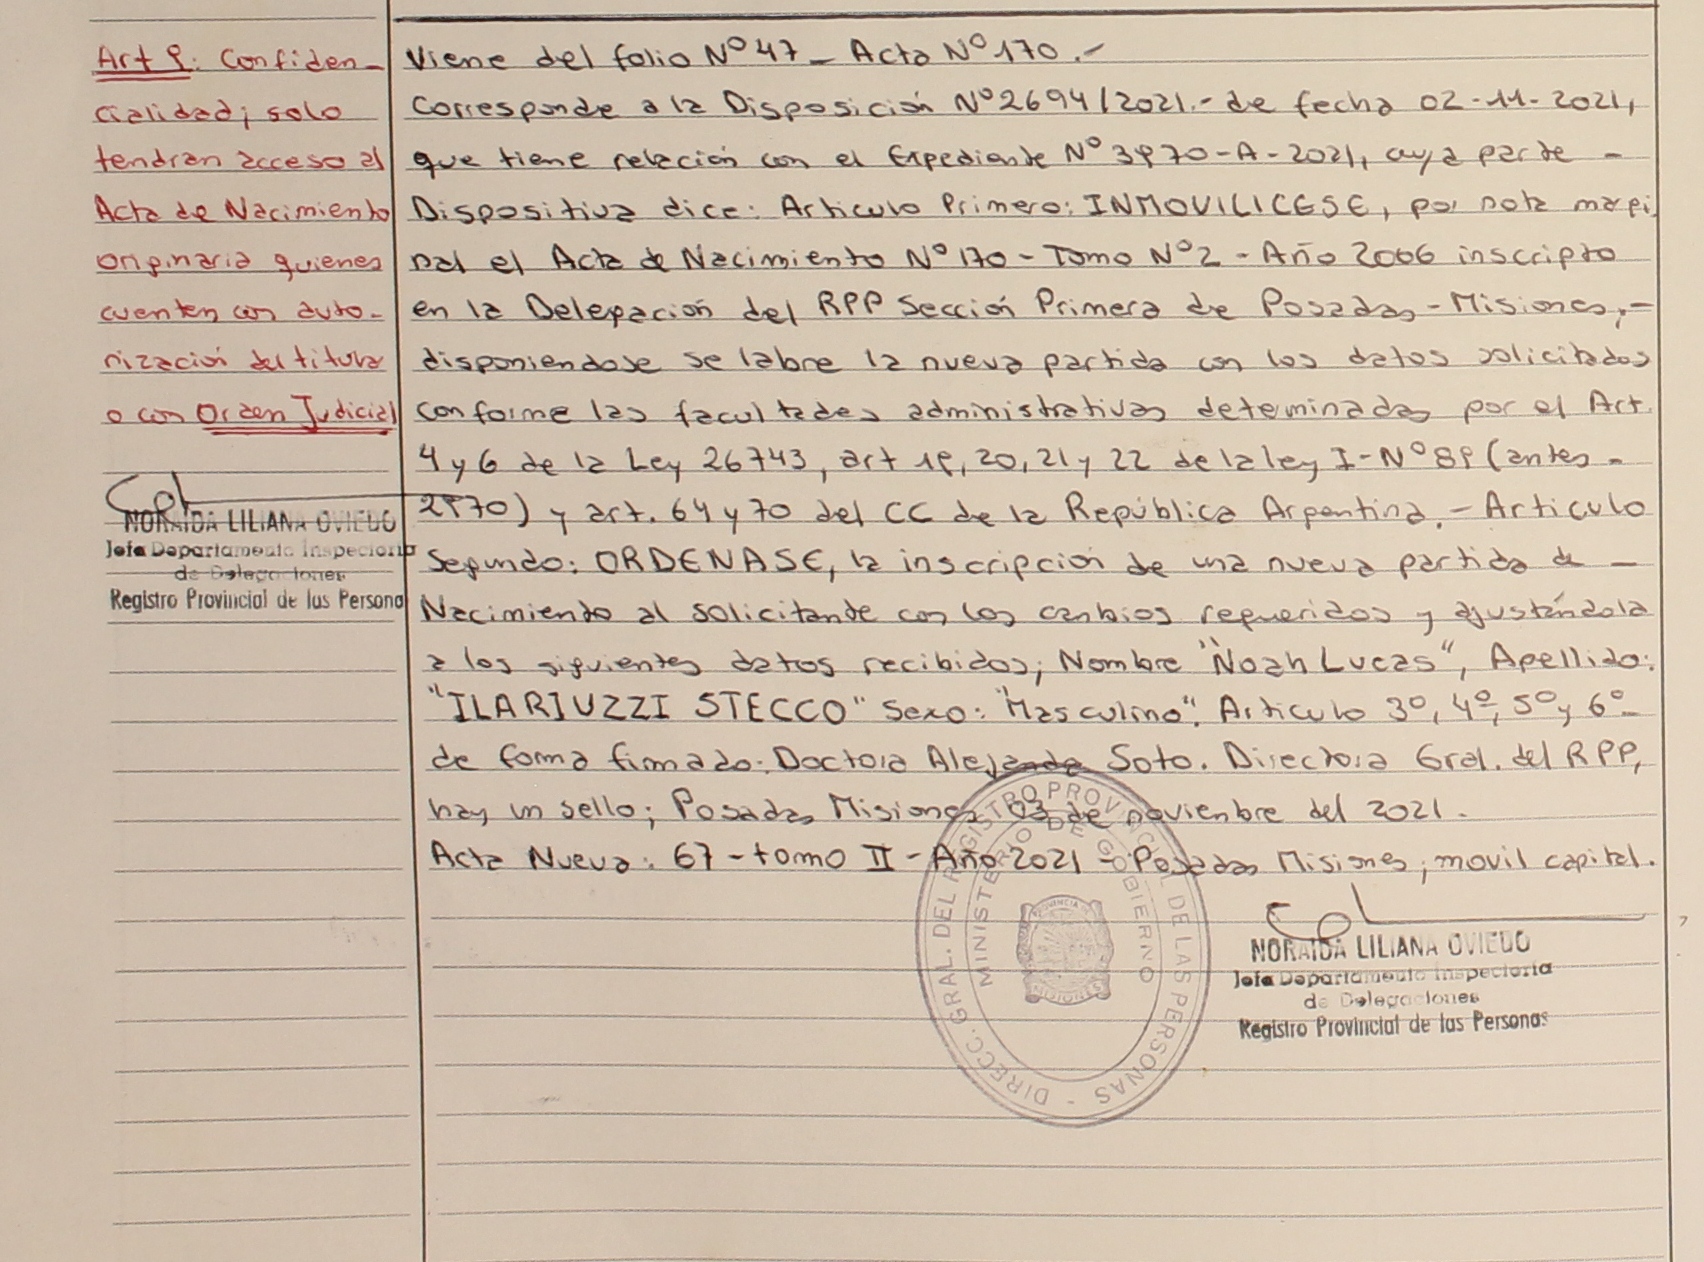 Art 9: Confiden-
cialidad; solo
tendran acceso al
Acta de Nacimiento
originaria quienes
cuenten con auto-
rización del titular
o con Orden Judicial
NORAIDA LILIANA OVIEDO
Jefa Departamento Inspectoria
de Delegaciones
Registro Provincial de las Persona
Viene del folio Nº 47 - Acta Nº 170.-
Corresponde a la Disposición Nº 2694/2021.- de fecha 02-11-2021,
que tiene relación con el Expediente Nº 3970-A-2021, cuya parte -
Dispositiva dice: Articulo Primero: INMOVILICESE, por nota margi
nal el Acta de Nacimiento Nº 170 - Tomo Nº 2 - Año 2006 inscripto
en la Delegación del RPP Sección Primera de Posadas - Misiones,-
disponiendose se labre la nueva partida con los datos solicitados
conforme las facultades administrativas determinadas por el Art.
4 y 6 de la Ley 26743, art 19, 20, 21 y 22 de la ley I-Nº 89 (antes -
2970) y art. 64 y 70 del CC de la República Argentina.- Articulo
Segundo: ORDENASE, la inscripción de una nueva partida de -
Nacimiento al solicitante con los cambios requeridos y ajustándola
a los siguientes datos recibidos; Nombre "Noah Lucas", Apellido:
"ILARIUZZI STECCO" Sexo: "Masculino". Articulo 3º, 4º, 5º y 6º -
de forma firmado: Doctora Alejanda Soto. Directora Gral. del RPP,
hay un sello; Posadas Misiones 03 de noviembre del 2021.
Acta Nueva: 67 - tomo II - Año 2021 - Posadas Misiones; movil capital.
DIRECC. GRAL. DEL REGISTRO PROVINCIAL DE LAS PERSONAS -
MINISTERIO DE GOBIERNO
PROVINCIA DE
MISIONES
NORAIDA LILIANA OVIEDO
Jefa Departamento Inspectoria
de Delegaciones
Registro Provincial de las Personas